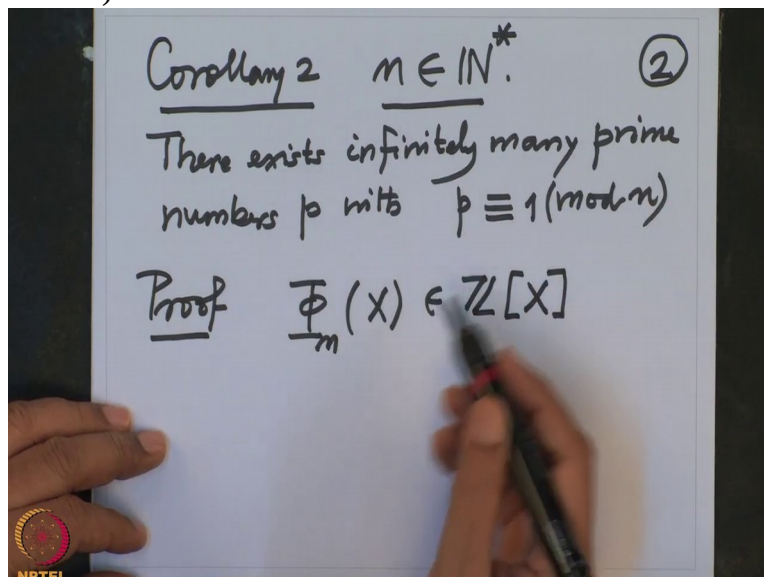 Corollary 2 n ∈ ℕ*. ②
There exists infinitely many prime
numbers p with p ≡ 1 (mod n)
Proof Φₙ(X) ∈ ℤ[X]
NPTEL